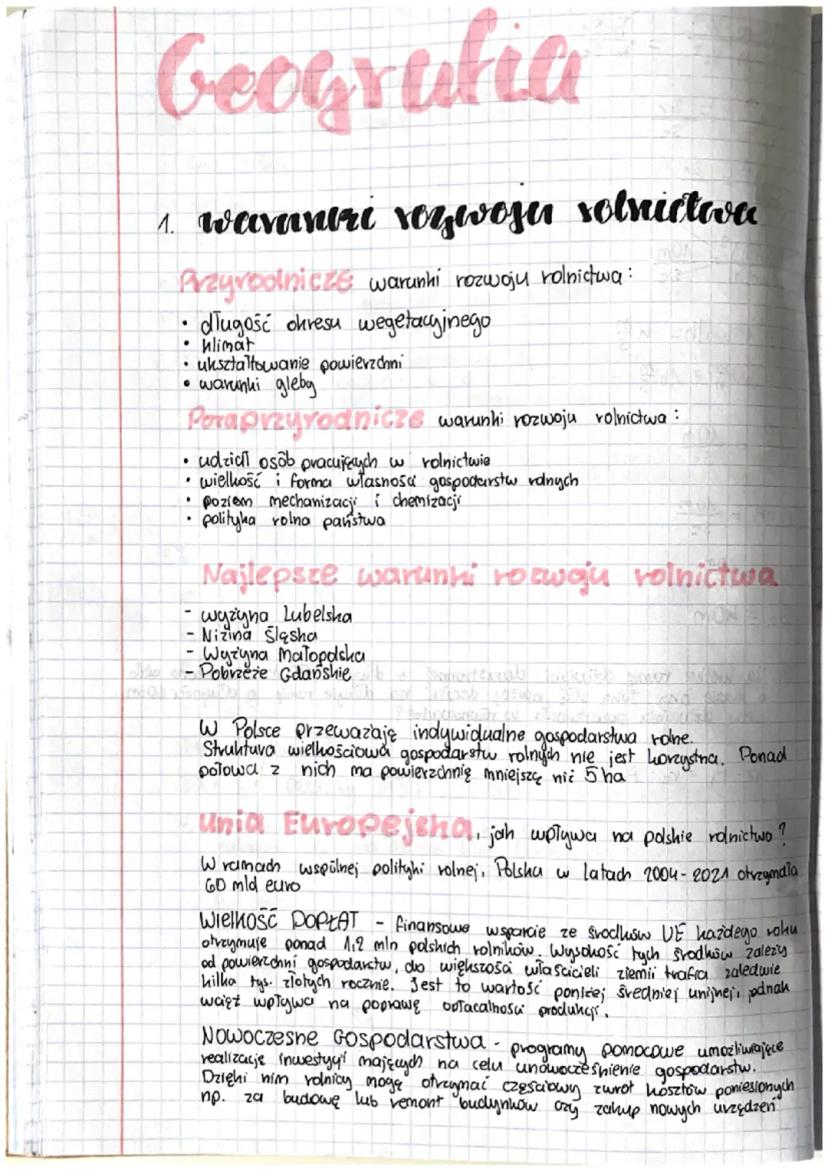 Geografia
1. warunki rozwoju rolnictwa
Przyrodnicze warunki rozwoju rolnictwa:
• długość okresu wegetacyjnego
• klimat
• ukształtowanie powierzchni
• warunki gleby
Pozaprzyrodnicze warunki rozwoju rolnictwa:
• udział osób pracujących w rolnictwie
• wielkość i forma własności gospodarstw rolnych
• poziom mechanizacji i chemizacji
• polityka rolna państwa
Najlepsze warunki rozwoju rolnictwa
- wyżyna Lubelska
- Nizina Śląska
- Wyżyna Małopolska
- Pobrzeże Gdańskie
W Polsce przeważają indywidualne gospodarstwa rolne.
Struktura wielkościowa gospodarstw rolnych nie jest korzystna. Ponad
połowa z nich ma powierzchnię mniejszą niż 5 ha
Unia Europejska, jak wpływa na polskie rolnictwo?
W ramach wspólnej polityki rolnej, Polska w latach 2004-2021 otrzymała
60 mld euro
WIELKOŚĆ DOPŁAT - finansowe wsparcie ze środków UE każdego roku
otrzymuje ponad 1,2 mln polskich rolników. Wysokość tych środków zależy
od powierzchni gospodarstw, do większości właścicieli ziemii trafia zaledwie
kilka tys. złotych rocznie. Jest to wartość poniżej średniej unijnej, jednak
wciąż wpływa na poprawę opłacalności produkcji.
NOWOCZESNE GOSPODARSTWA - programy pomocowe umożliwiające
realizację inwestycji mających na celu unowocześnienie gospodarstw.
Dzięki nim rolnicy mogą otrzymać częściowy zwrot kosztów poniesionych
np. za budowę lub remont budynków czy zakup nowych urządzeń